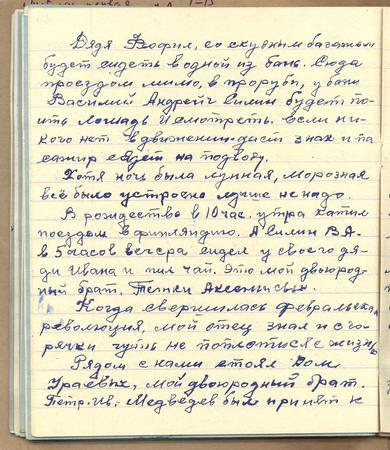 Дядя Теофил, со скудным багажом
будет сидеть в одной из бань. Сюда
проездом мимо, в проруби, у бани
Василий Андреич Силин будет по-
ить лошадь и смотреть. если ни-
кого нет в движении даст знак и па
сажир сядет на подводу.
Хотя ночь была лунная, морозная
всё было устроено лучше не надо.
В рождество в 10 час. утра катил
поездом в финляндию. А Силин В.А.
в 5 часов вечера сидел у своего дя-
ди Ивана и пил чай. Это мой двоюрод-
ный брат.
Когда свершилась февральска
революция, мой отец знал и с го-
рячки чуть не поплотился с жизн
Рядом с нами стоял дом
Ураевых, мой двоюродный брат.
Петр. Ив. Медведев был принят к